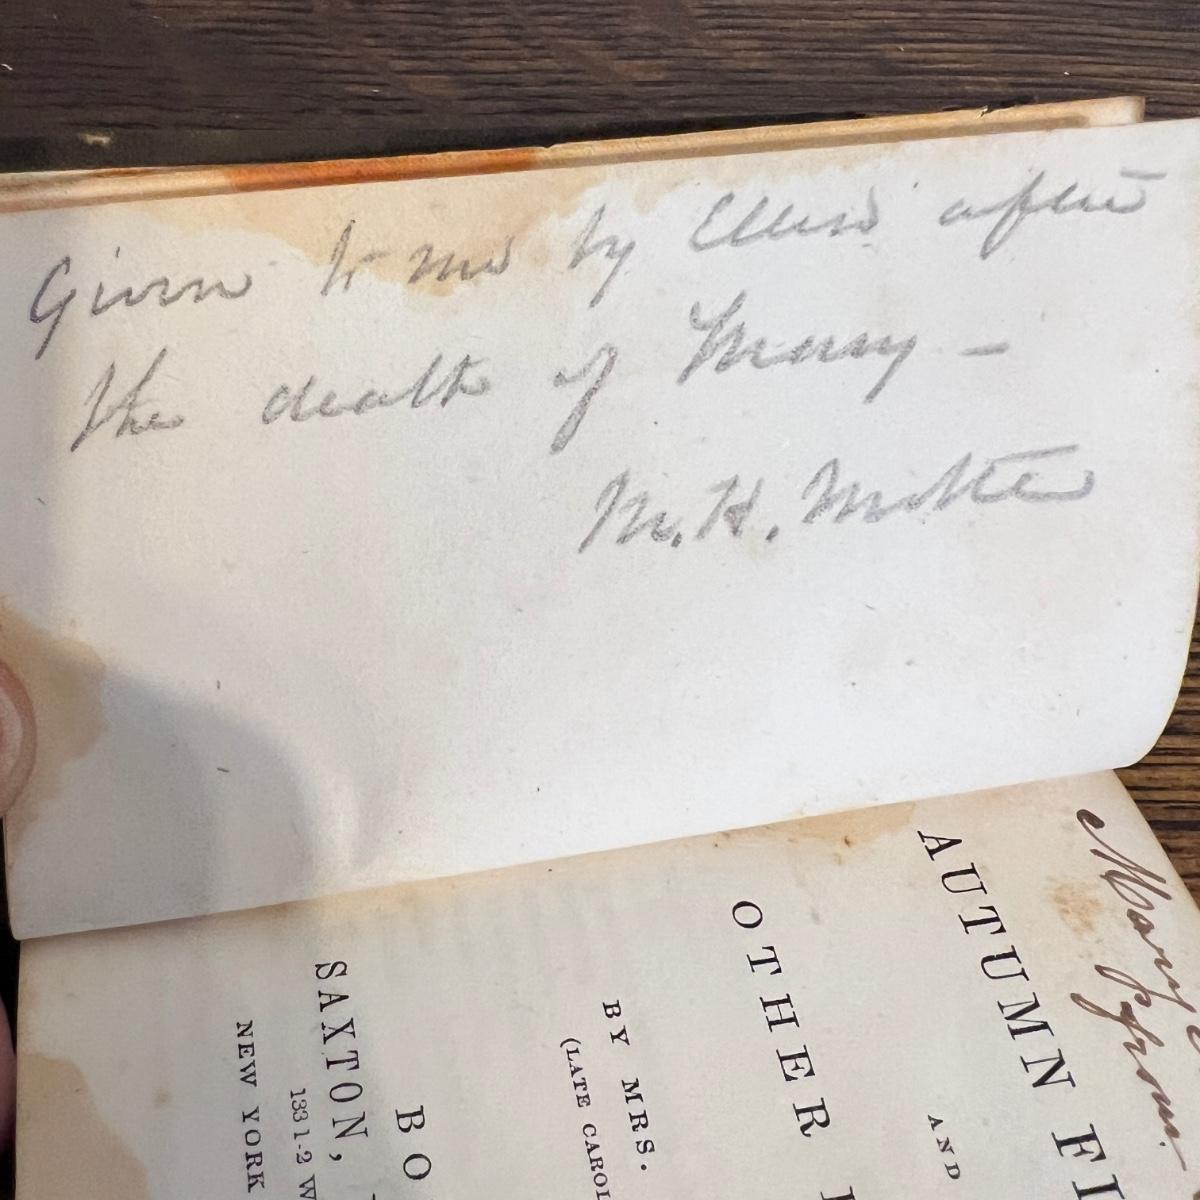 Given to me by Ellen after
the death of Mary –
M. H. Motte
Mary
from
AUTUMN FL
AND
OTHER
BY MRS.
(LATE CAROL
BO
SAXTON,
133 1-2 W
NEW YORK